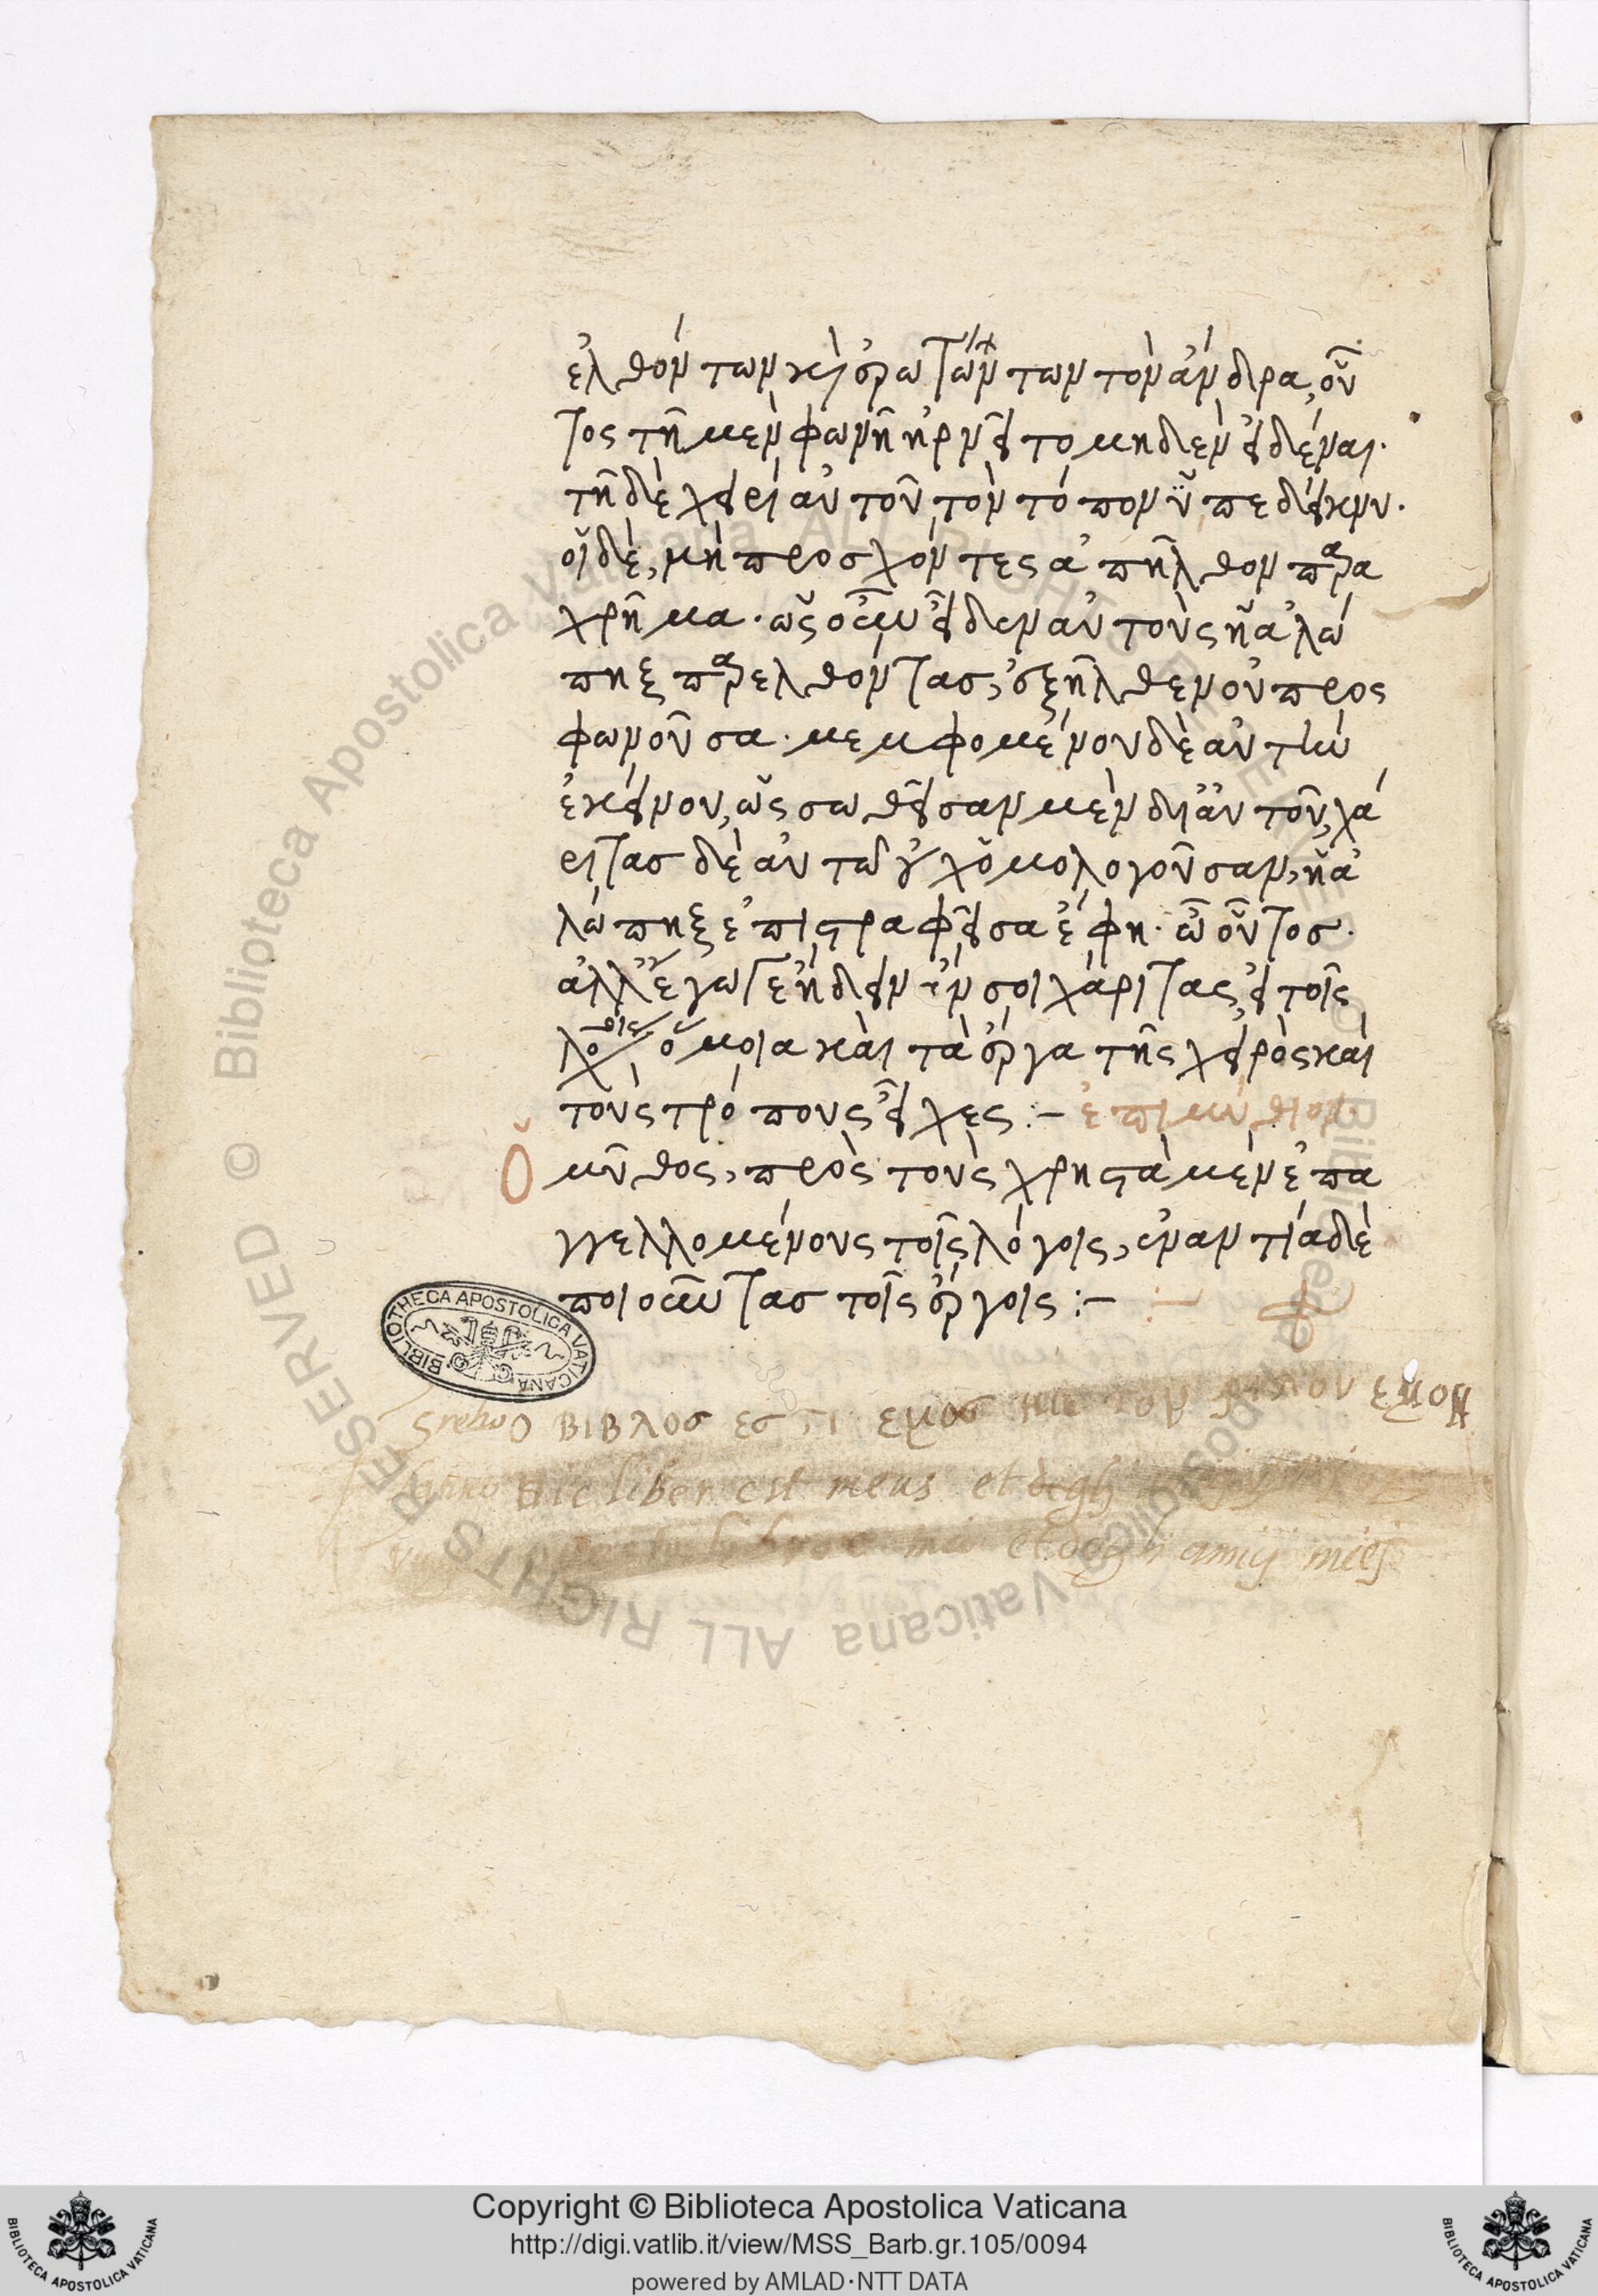 ἐλθόντων κἀρωτώντων τὸν ἄνδρα, οὗ
τος τῇ μὲν φωνῇ ἠρνεῖτο μηδὲν εἰδέναι.
τῇ δὲ χειρὶ αὐτοῦ, τὸν τόπον ὑπεδείκνυ.
οἱ δὲ, μὴ προσχόντες ἀπῆλθον παρα
χρῆμα. ὡς οὖν εἶδεν αὐτοὺς ἡ ἀλώ
πηξ παρελθόντας, ἐξῆλθεν οὐ προσ
φωνοῦσα. μεμφομένου δὲ αὐτὴν
ἐκείνου, ὡς σωθεῖσαν μὲν δι' αὐτοῦ, χά
ριτας δὲ αὐτῷ οὐχ ὁμολογοῦσαν, ἡ ἀ
λώπηξ ἐπιστραφεῖσα ἔφη. ὦ οὗτος.
ἀλλ' ἔγωγε ᾔδειν ἄν σοι χάριτας, εἰ τοῖς
λόγοις ὅμοια καὶ τὰ ἔργα τῆς χειρὸς καὶ
τοὺς τρόπους εἶχες :- ἐπιμύθιον.
Ὁ μῦθος, πρὸς τοὺς χρηστὰ μὲν ἐπα
γγελλομένους τοῖς λόγοις, ἐναντία δὲ
ποιοῦντας τοῖς ἔργοις :-
BIBLIOTHECA APOSTOLICA VATICANA
Greho Ο ΒΙΒΛΟΣ ΕΣΤΙ ΕΜΟΣ
latino Hic liber est meus et degli
et degli amicj miej
© Biblioteca Apostolica Vaticana ALL RIGHTS RESERVED
Copyright © Biblioteca Apostolica Vaticana
http://digi.vatlib.it/view/MSS_Barb.gr.105/0094
powered by AMLAD·NTT DATA
BIBLIOTECA APOSTOLICA VATICANA
BIBLIOTECA APOSTOLICA VATICANA